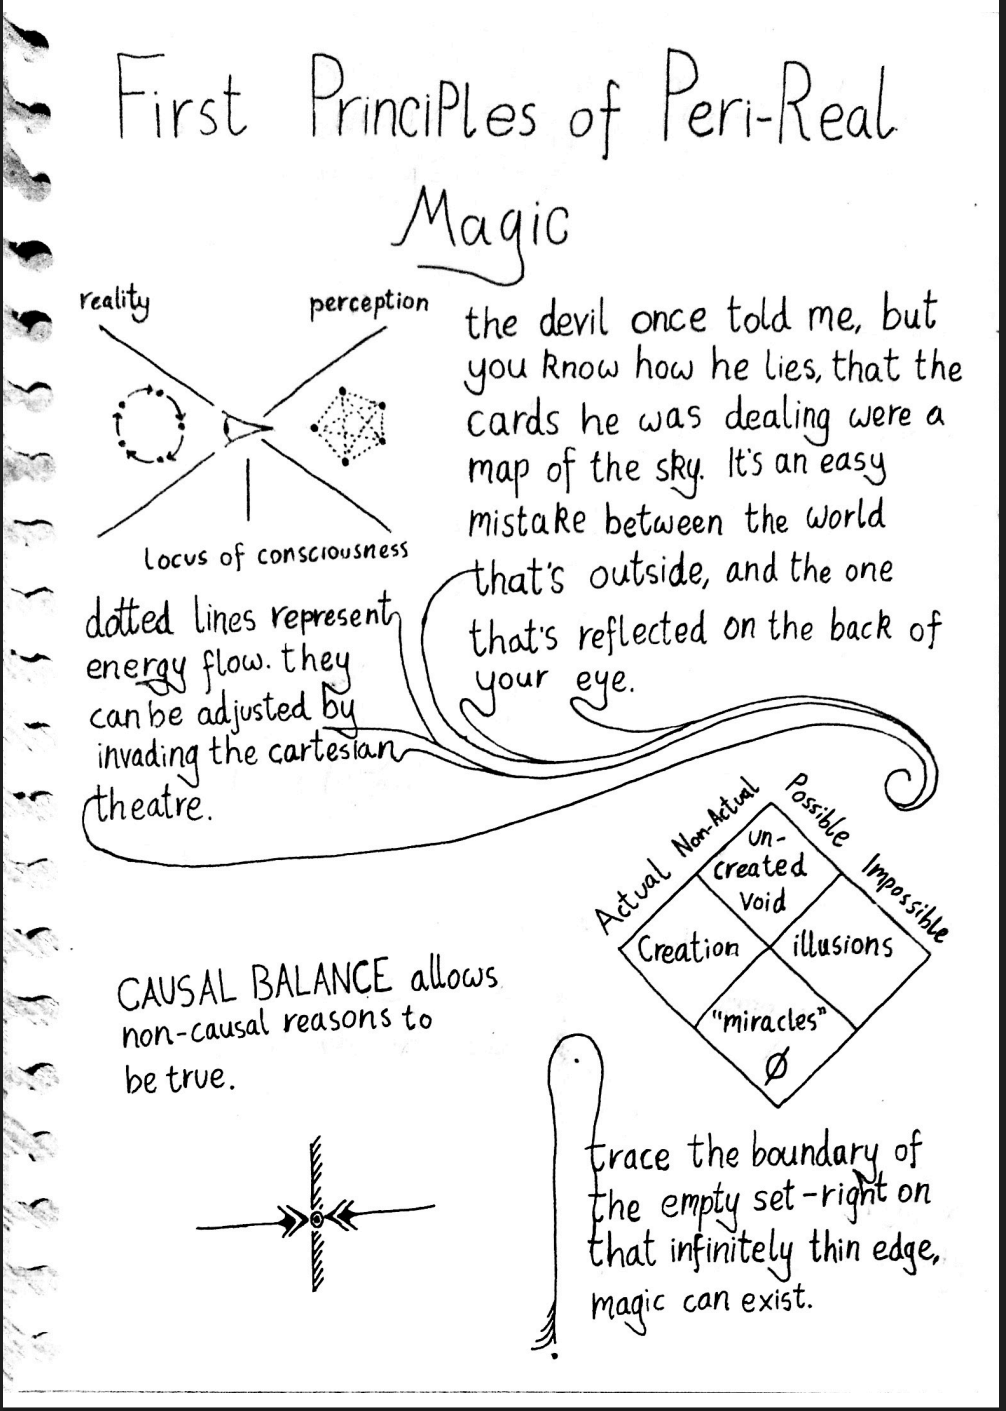 First Principles of Peri-Real
Magic
reality
perception
locus of consciousness
the devil once told me, but
you know how he lies, that the
cards he was dealing were a
map of the sky. It's an easy
mistake between the world
that's outside, and the one
that's reflected on the back of
your eye.
dotted lines represent
energy flow. they
can be adjusted by
invading the cartesian
theatre.
Actual Non-Actual
Possible Impossible
un-
created
void
Creation
illusions
"miracles"
Ø
CAUSAL BALANCE allows
non-causal reasons to
be true.
trace the boundary of
the empty set-right on
that infinitely thin edge,
magic can exist.